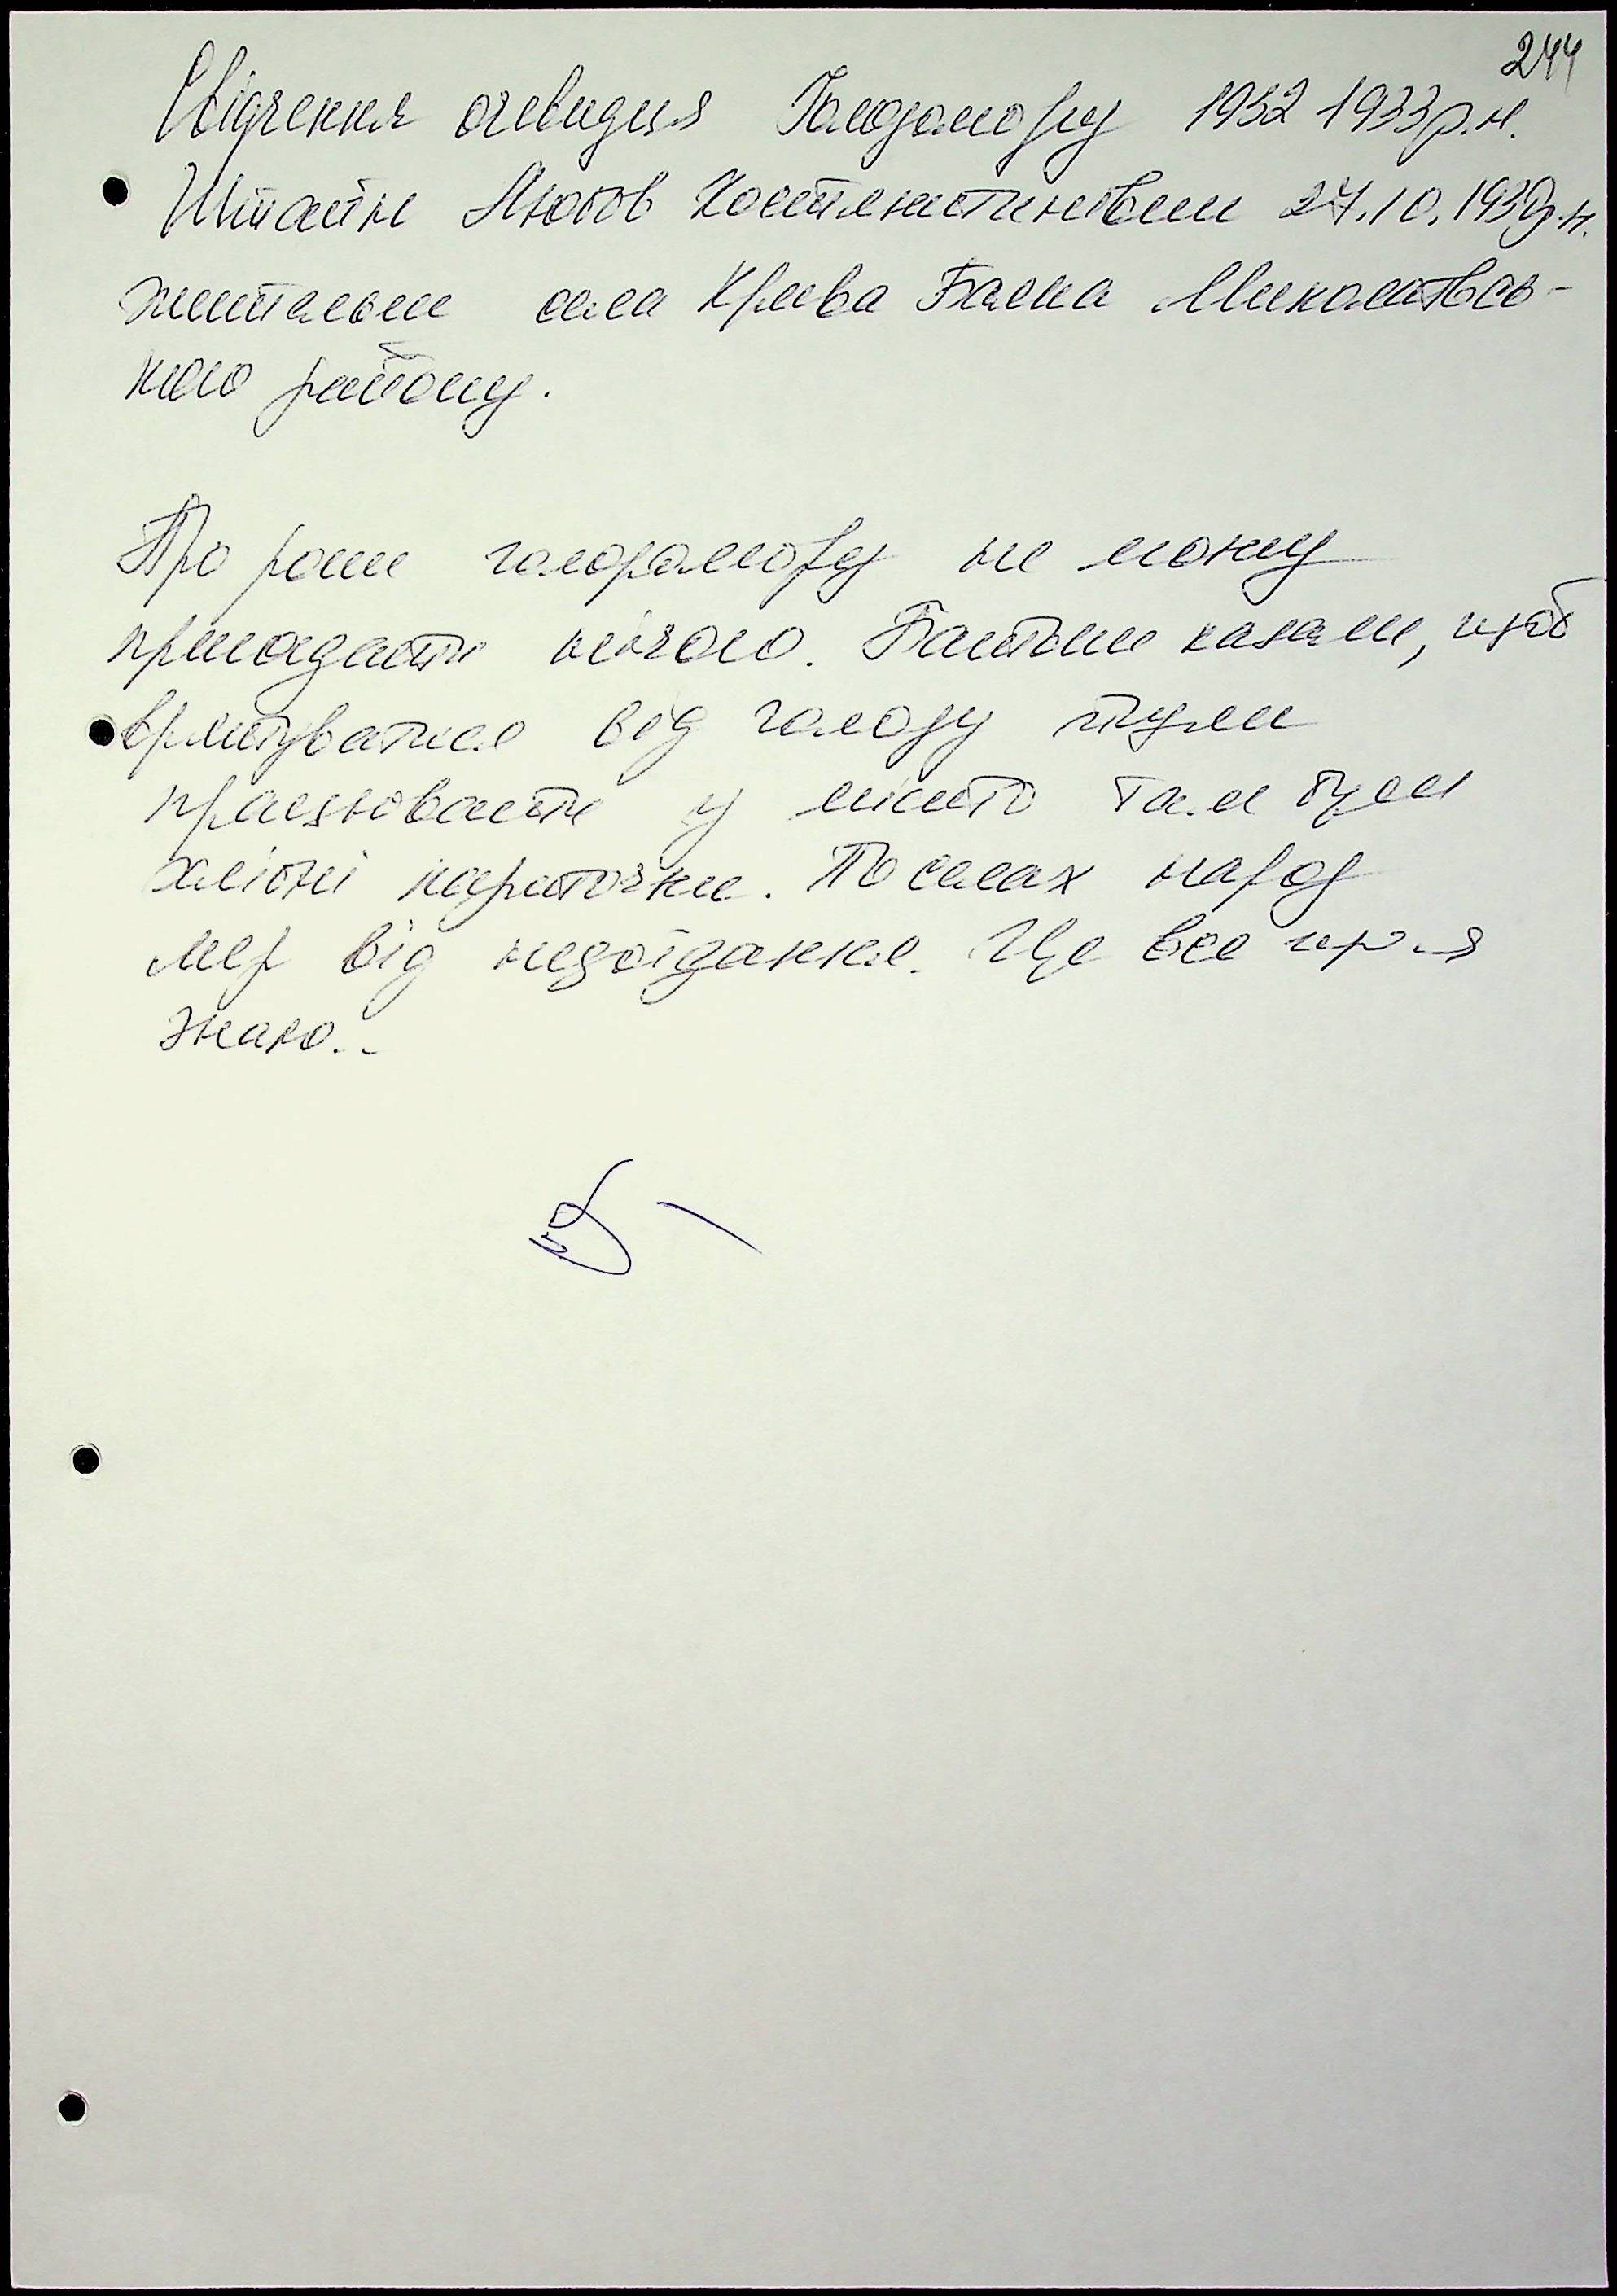 244
Свідчення очевидця Голодомору 1932 1933 р.н.
Штайн Любов Костянтинівни 27.10.1939р.н.
жительки села Крива Балка Миколаївсь-
кого району.
Про роки голодомору не можу
пригадати нічого. Батьки казали, щоб
врятуватися від голоду йшли
працювати у місто там були
хлібні карточки. По селах народ
мер від недоїдання. Це все що я
знаю..